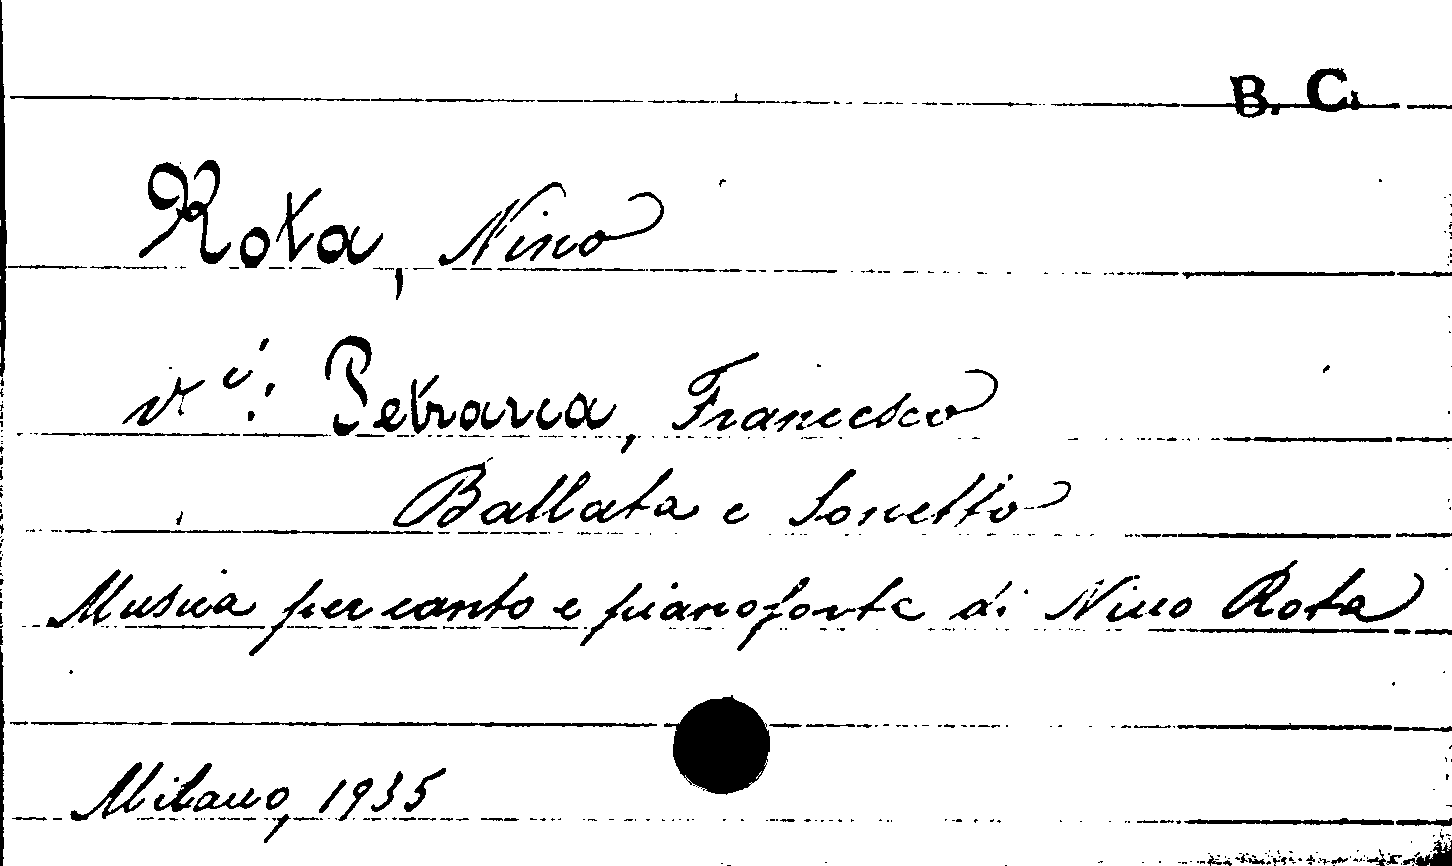 B. C.
Rota, Nino
vi: Petrarca, Francesco
Ballata e Sonetto
Musica per canto e pianoforte di Nino Rota
Milano, 1935